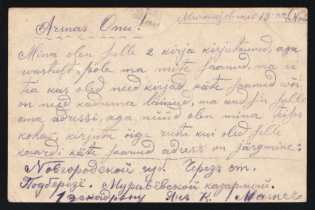 Armas Onu!
Mina olen Sulle 2 kirja kirjutanud, aga
wastust põle ma mitte saanud, ma ei
tea kas oled need kirjad kätte saanud wõi
on need kaduma läinud, ma and sin Sulle
oma adressi, aga nüüd olen mina teise
kohas, kirjuta õige ruttu kui oled selle
kaardi kätte saanud adress on järgmine:
Новгородской губ. Черезъ ст.
Подберезье. Муравьевской казармой.
1 эскадрону Янъ К.